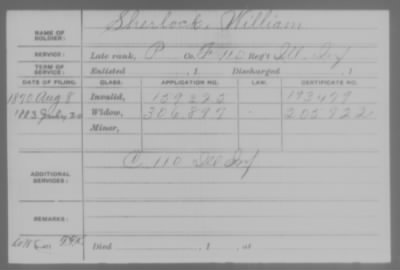 NAME OF SOLDIER: Sherlock, William
SERVICE: Late rank, P Co. F 110 Reg't Ill Inf
TERM OF SERVICE: Enlisted , 1 Discharged , 1
DATE OF FILING. CLASS. APPLICATION NO. LAW. CERTIFICATE NO.
1870 Aug 8 Invalid, 159,225 193479
1883 July 30 Widow, 306,897 205,922
Minor,
ADDITIONAL SERVICES: C. 110 Ill Inf
REMARKS:
Died , 1 , at